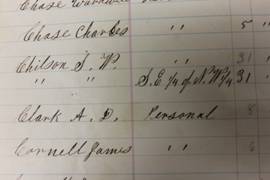 Chase
Chase Charles " 5 "
Chilson J. W. " 31
" " S.E 1/4 of N.W 1/4 31
Clark A. D. Personal 8
Cornell James " 6